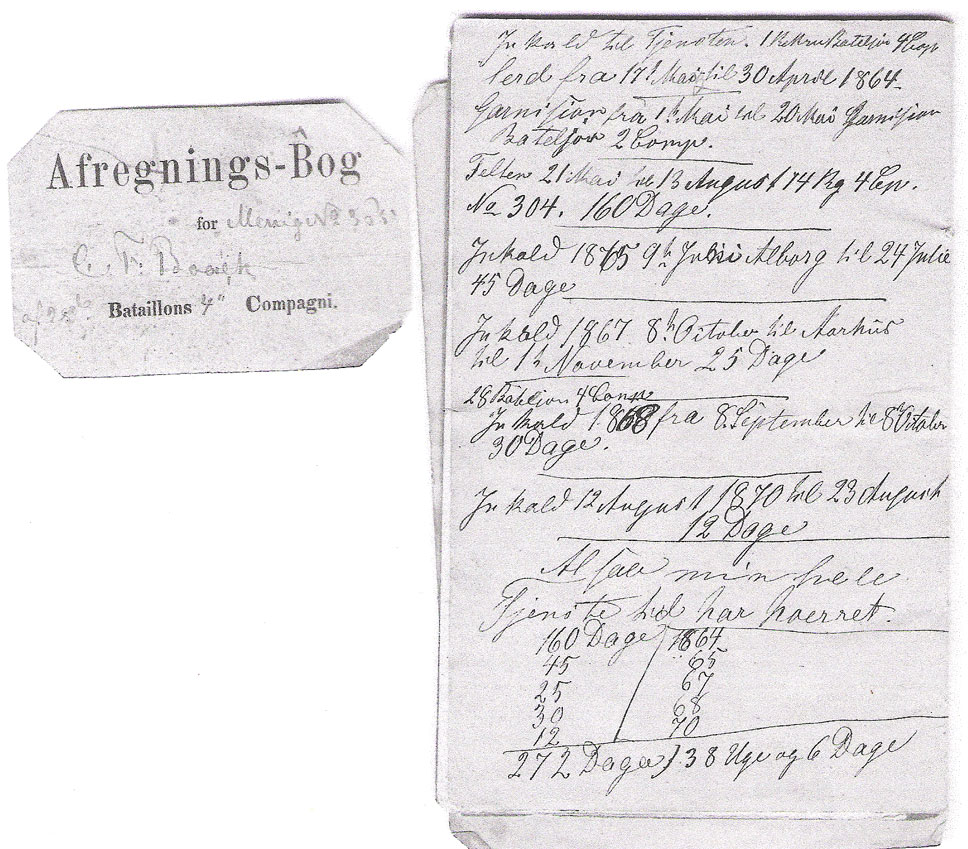 Afregnings-Bog
for Menig No 305
C. F.
Bataillons 4" Compagni.
Inkald til Tjenesten. 1 Rekru Bateljon 4 Comp
fra 17 til 30 April 1864
Garnisjon fra 1h Mai til 20 Mai Garnisjon
Bateljon 2 Comp.
Felten 21 Mai til 13 August 14 Rg 4 Cp.
No 304. 160 Dage.
Inkald 1865 9h Juni Alborg til 24 Julie
45 Dage
Inkald 1867 8h October til Aarhus
til 1h November 25 Dage
28 Bateljon 4 Comp
Inkald 1868 fra 8 September til 8h October
30 Dage.
Inkald 12 August 1870 til 23 August
12 Dage
Alsaa min hele
Tjeneste tid har værret.
160 Dage 1864
45 65
25 67
30 68
12 70
272 Dage } 38 Uge og 6 Dage